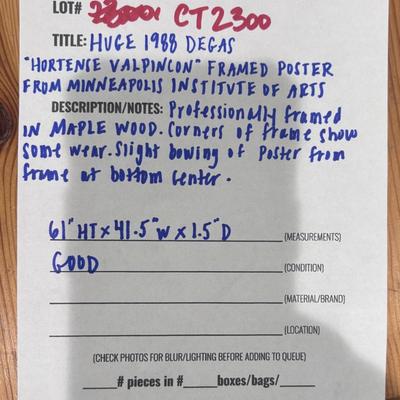 LOT# CT2300
TITLE: HUGE 1988 DEGAS
"HORTENSE VALPINCON" FRAMED POSTER
FROM MINNEAPOLIS INSTITUTE OF ARTS
DESCRIPTION/NOTES: Professionally framed
IN MAPLE WOOD. Corners of frame show
some wear. Slight bowing of Poster from
frame at bottom center.
61"HT x 41.5"W x 1.5"D (MEASUREMENTS)
GOOD (CONDITION)
(MATERIAL/BRAND)
(LOCATION)
(CHECK PHOTOS FOR BLUR/LIGHTING BEFORE ADDING TO QUEUE)
_____# pieces in #_____boxes/bags/_____